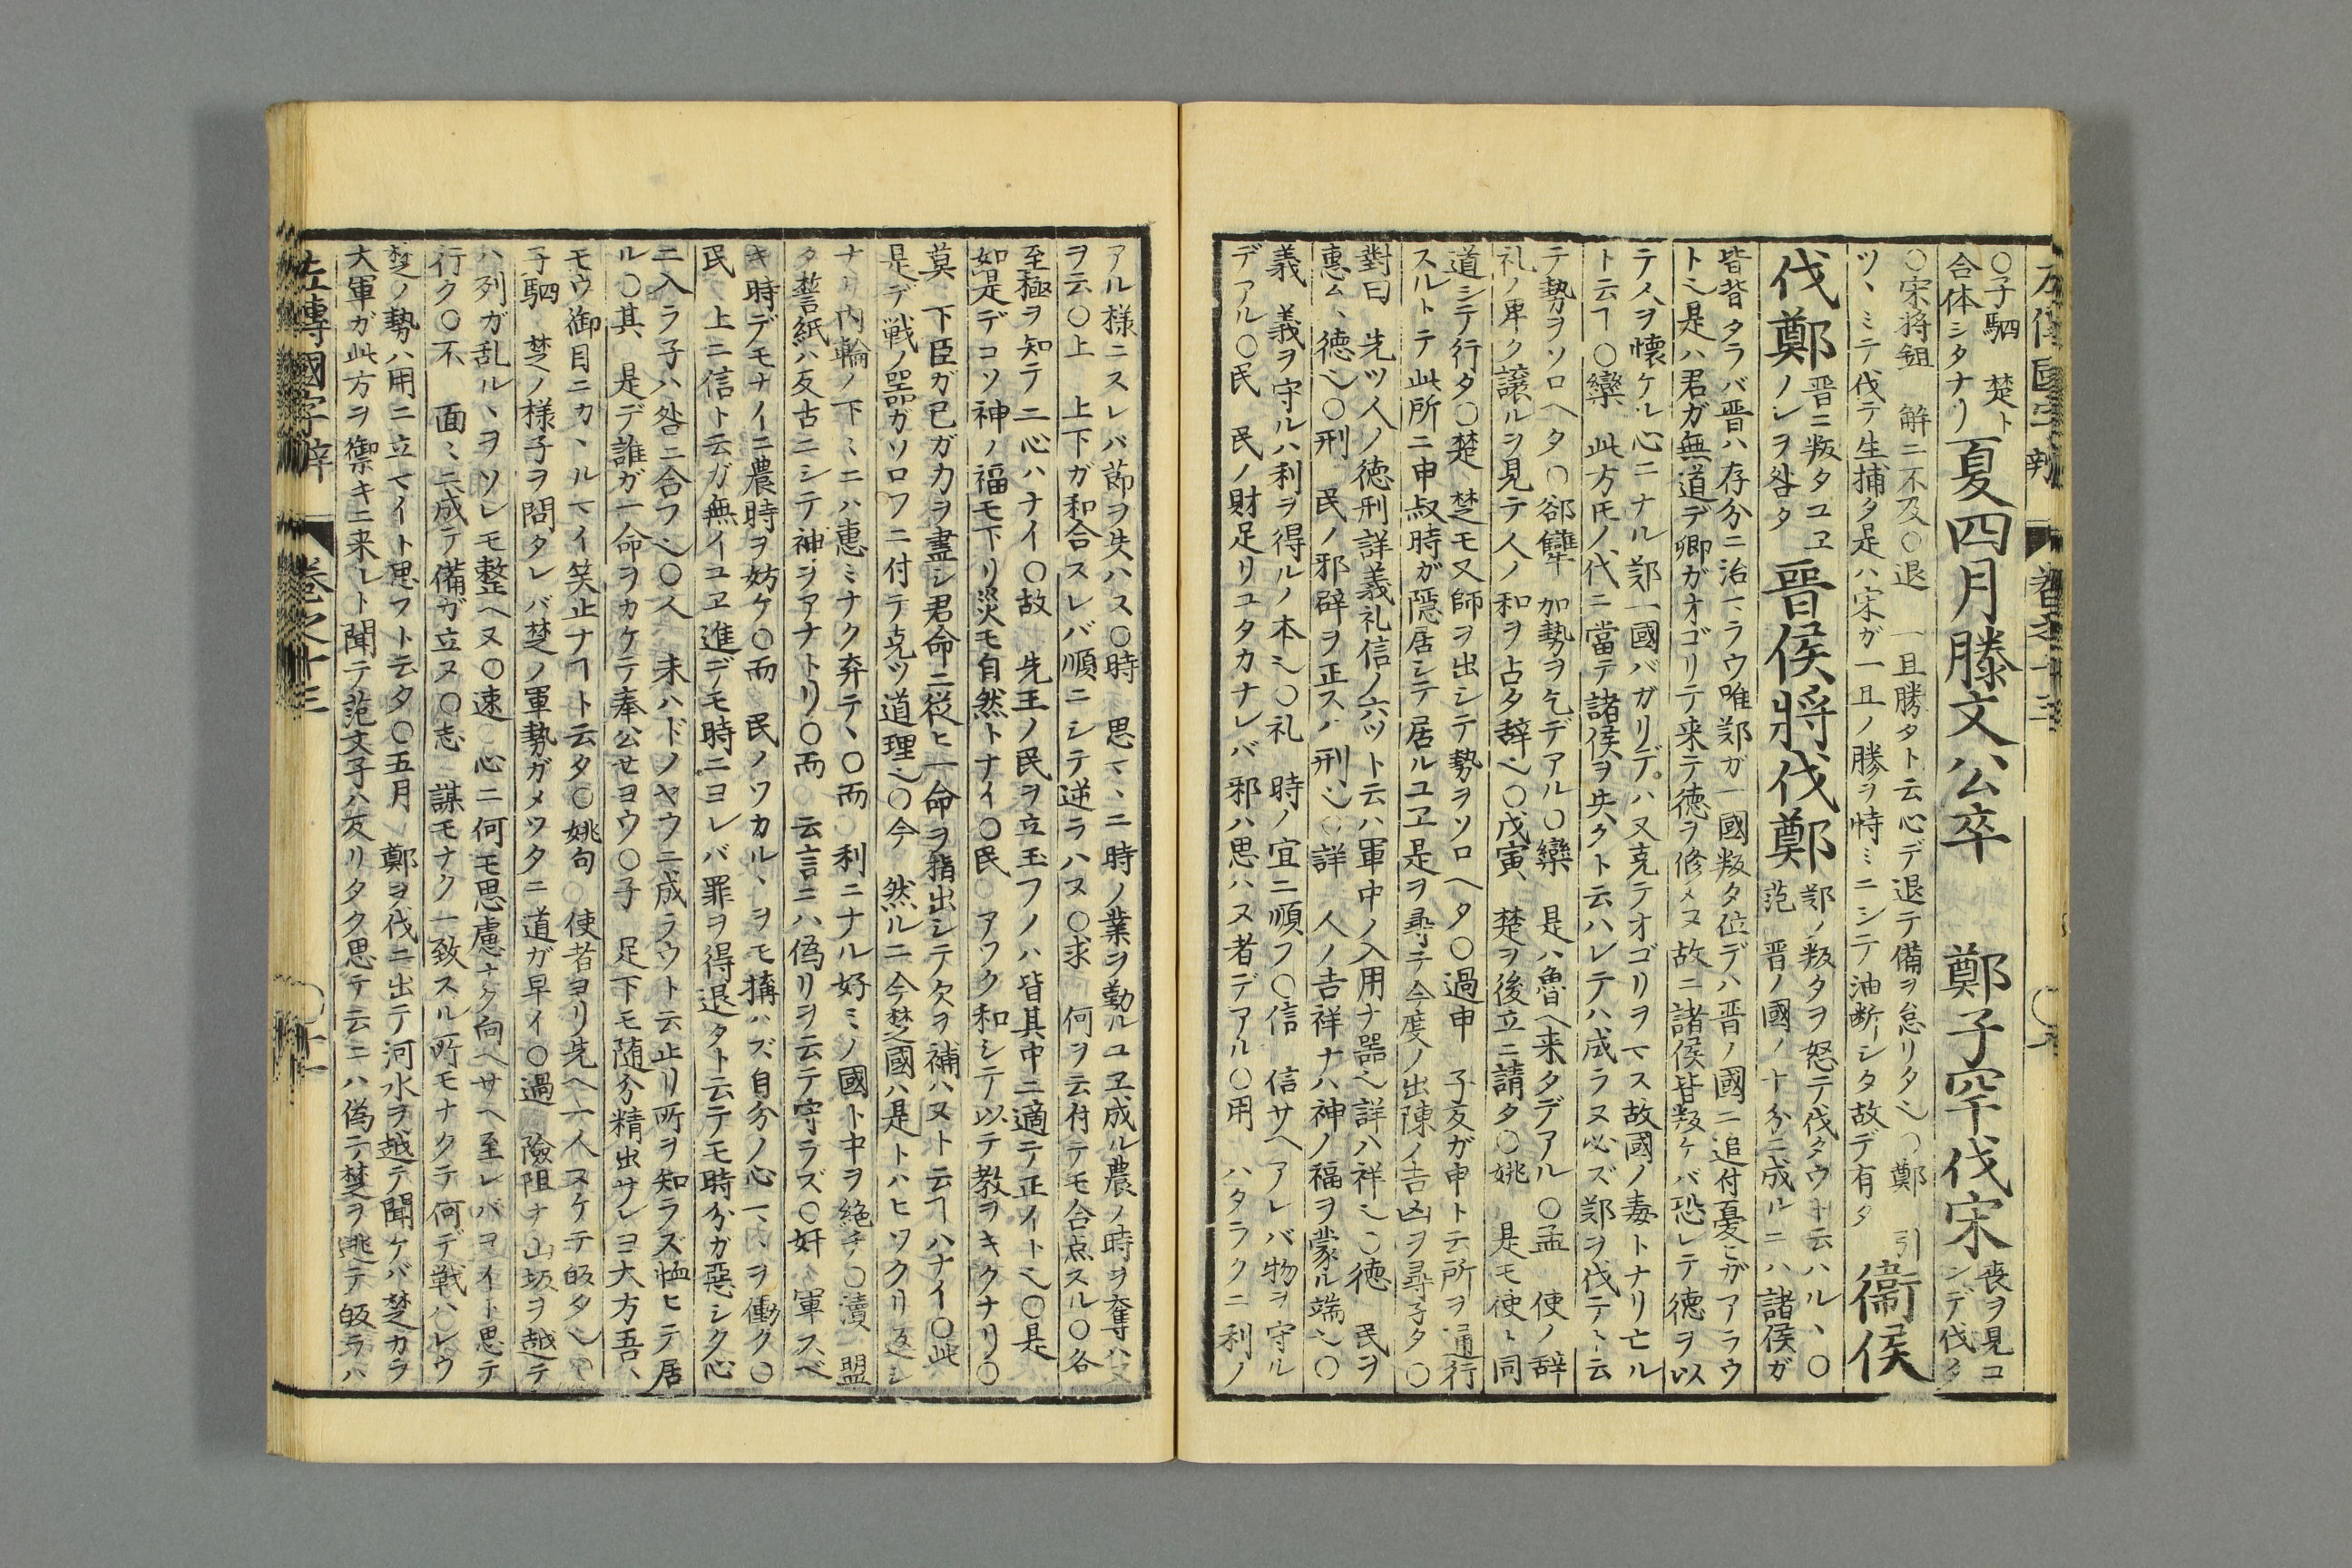 左傳國字辨 卷之十三
○子駟 楚ト
合体シタナリ
夏四月滕文公卒 鄭子罕伐宋
喪ヲ見コ
ンデ伐タ
○宋将鉏 解ニ不及○退 一旦勝タト云心デ退テ備ヲ怠リタ也○鄭 引
ツヽミテ伐テ生捕タ是ハ宋ガ一旦ノ勝ヲ恃ミニシテ油断シタ故デ有タ
衞侯
伐鄭
晋ニ叛タユヱ
ノレヲ咎タ
晋侯將伐鄭
郑ノ叛タヲ怒テ伐タウト云ハルヽ○
范 晋ノ國ノ十分ニ成ルニハ諸侯ガ
皆背タラバ晋ハ存分ニ治マラウ唯郑ガ一國叛タ位デハ晋ノ國ニ追付憂ヒガアラウ
ト也是ハ君ガ無道デ卿ガオゴリテ来テ徳ヲ修メヌ故ニ諸侯皆叛ケバ恐レテ徳ヲ以
テ人ヲ懐ケル心ニナル郑一國バカリデハ又克テオゴリヲマス故國ノ毒トナリ亡ル
ト云ヿ○欒 此方氏ノ代ニ當テ諸侯ヲ失クト云ハレテハ成ラヌ必ズ郑ヲ伐テト云
テ勢ヲソロヘタ○郤犨 加勢ヲ乞デアル○欒 是ハ魯ヘ来タデアル○孟 使ノ辞
礼ノ卑ク譲ルヲ見テ人ノ和ヲ占タ辞也○戊寅 楚ヲ後立ニ請タ○姚 是モ使ヽ同
道シテ行タ○楚 楚モ又師ヲ出シテ勢ヲソロヘタ○過申 子反ガ申ト云所ヲ通行
スルトテ此所ニ申叔時ガ隠居シテ居ルユヱ是ヲ尋テ今度ノ出陳ノ吉凶ヲ尋子タ○
對曰 先ツ人ノ徳刑詳義礼信ノ六ツト云ハ軍中ノ入用ナ器也詳ハ祥也○徳 民ヲ
惠ムハ徳也○刑 民ノ邪辟ヲ正スハ刑也○詳 人ノ吉祥ナハ神ノ福ヲ蒙ル端也○
義 義ヲ守ルハ利ヲ得ルノ本也○礼 時ノ宜ニ順フ○信 信サヘアレバ物ヲ守ル
デアル○民 民ノ財足リユタカナレバ邪ハ思ハヌ者デアル○用 ハタラクニ利ノ
アル様ニスレバ節ヲ失ハス○時 思マヽニ時ノ業ヲ勤ルユヱ成ル農ノ時ヲ奪ハヌ
ヲ云○上 上下ガ和合スレバ順ニシテ逆ラハヌ○求 何ヲ云付テモ合点スル○各
至極ヲ知テ二心ハナイ○故 先王ノ民ヲ立玉フノハ皆其中ニ適テ正イト也○是
如是デコソ神ノ福モ下リ災モ自然トナイ○民 アツク和シテ以テ教ヲキクナリ○
莫 下臣ガ已ガ力ヲ盡シ君命ニ從ヒ一命ヲ指出シテ欠ヲ補ハヌト云ヿハナイ○此
是デ戦ノ器ガソロフニ付テ克ツ道理也○今 然ルニ今楚國ハ是トハヒツクリ返シ
ナリ内輪ノ下ミニハ惠ミナク弃テヽ○而 利ニナル好ミノ國ト中ヲ絶チ○瀆 盟
タ誓紙ハ反古ニシテ神ヲアナトリ○而 云言ニハ偽リヲ云テ守ラズ○奸 軍スベ
キ時デモナイニ農時ヲ妨ケ○而 民ノツカルヽヲモ搆ハズ自分ノ心マヽヲ働ク○
民 上ニ信ト云ガ無イユヱ進デモ時ニヨレバ罪ヲ得退タト云テモ時分ガ惡シク心
ニ入ラ子ハ咎ニ合フ也○人 末ハドノヤウニ成ラウト云止リ所ヲ知ラズ恤ヒテ居
ル○其 是デ誰ガ一命ヲカケテ奉公セヨウ○子 足下モ随分精出サレヨ大方吾ハ
モウ御目ニカヽルマイ笑止ナヿト云タ○姚句 使者ヨリ先ヘ一人ヌケテ皈タ也
子駟 楚ノ様子ヲ問タレバ楚ノ軍勢ガメツタニ道ガ早イ○過 險阻ナ山坂ヲ越テ
ハ列ガ乱ルヽヲソレモ整ヘヌ○速 心ニ何モ思慮ナク向ヘサヘ至レバヨイト思テ
行ク○不 面ミニ成テ備ガ立ヌ○志 謀モナク一致スル所モナクテ何デ戦ハレウ
楚ノ勢ハ用ニ立マイト思フト云タ○五月 鄭ヲ伐ニ出テ河水ヲ越テ聞ケバ楚カラ
大軍ガ此方ヲ禦キニ来レト聞テ范文子ハ反リタク思テ云ニハ偽テ楚ヲ逃テ皈ラハ
左傳國字辨 卷之十三